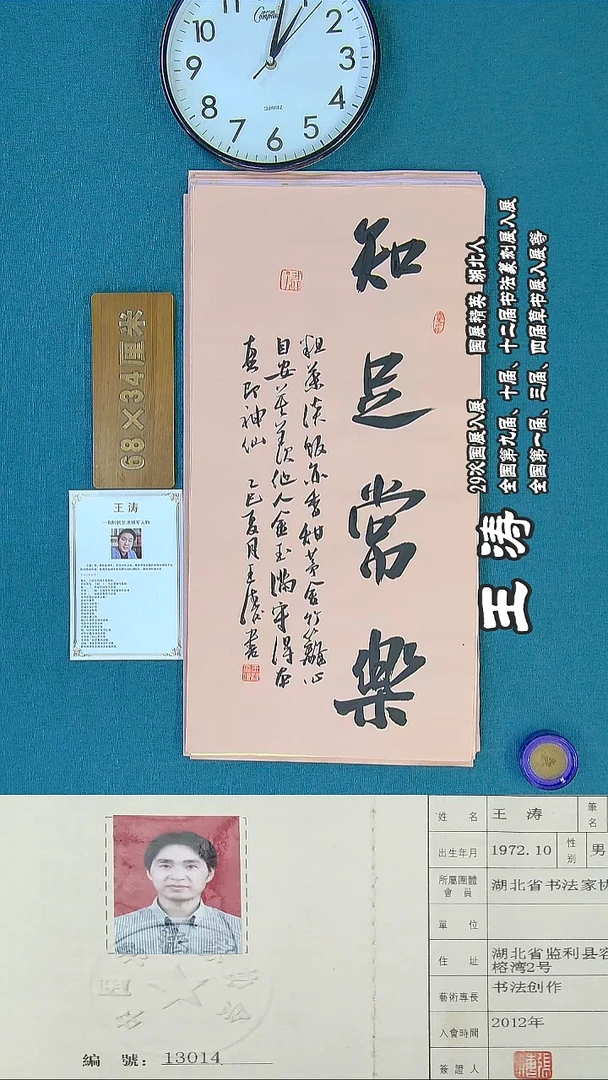 10
2
9
3
8
4
7
6
5
QUARTZ
知足常樂
粗茶淡饭亦香甜茅舍竹篱心
自安莫羡他人金玉满守得本
真即神仙 乙巳夏月王涛书
68×34厘米
王涛
29次国展入展 国展精英 湖北人
全国第九届、十届、十二届书法篆刻展入展
全国第一届、三届、四届草书展入展等
王涛
姓名 王涛 筆名
出生年月 1972.10 性別 男
所屬團體會員 湖北省书法家协
單位
住址 湖北省监利县容
榕湾2号
藝術專長 书法创作
入會時間 2012年
簽證人
編號：13014